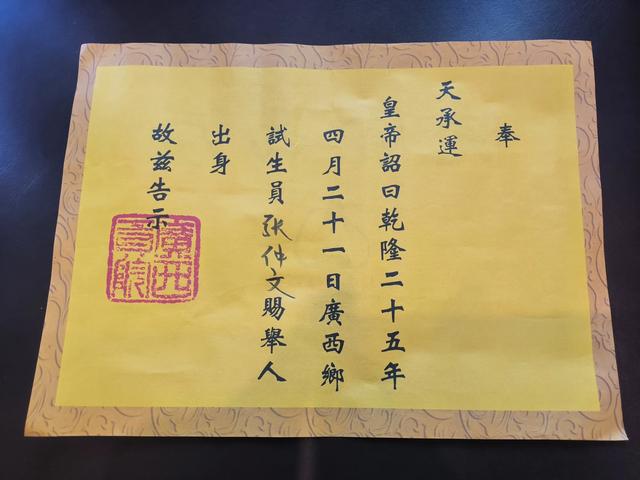 奉
天承運
皇帝詔曰乾隆二十五年
四月二十一日廣西鄉
試生員张仲文賜舉人
出身
故兹告示
廣西貢院